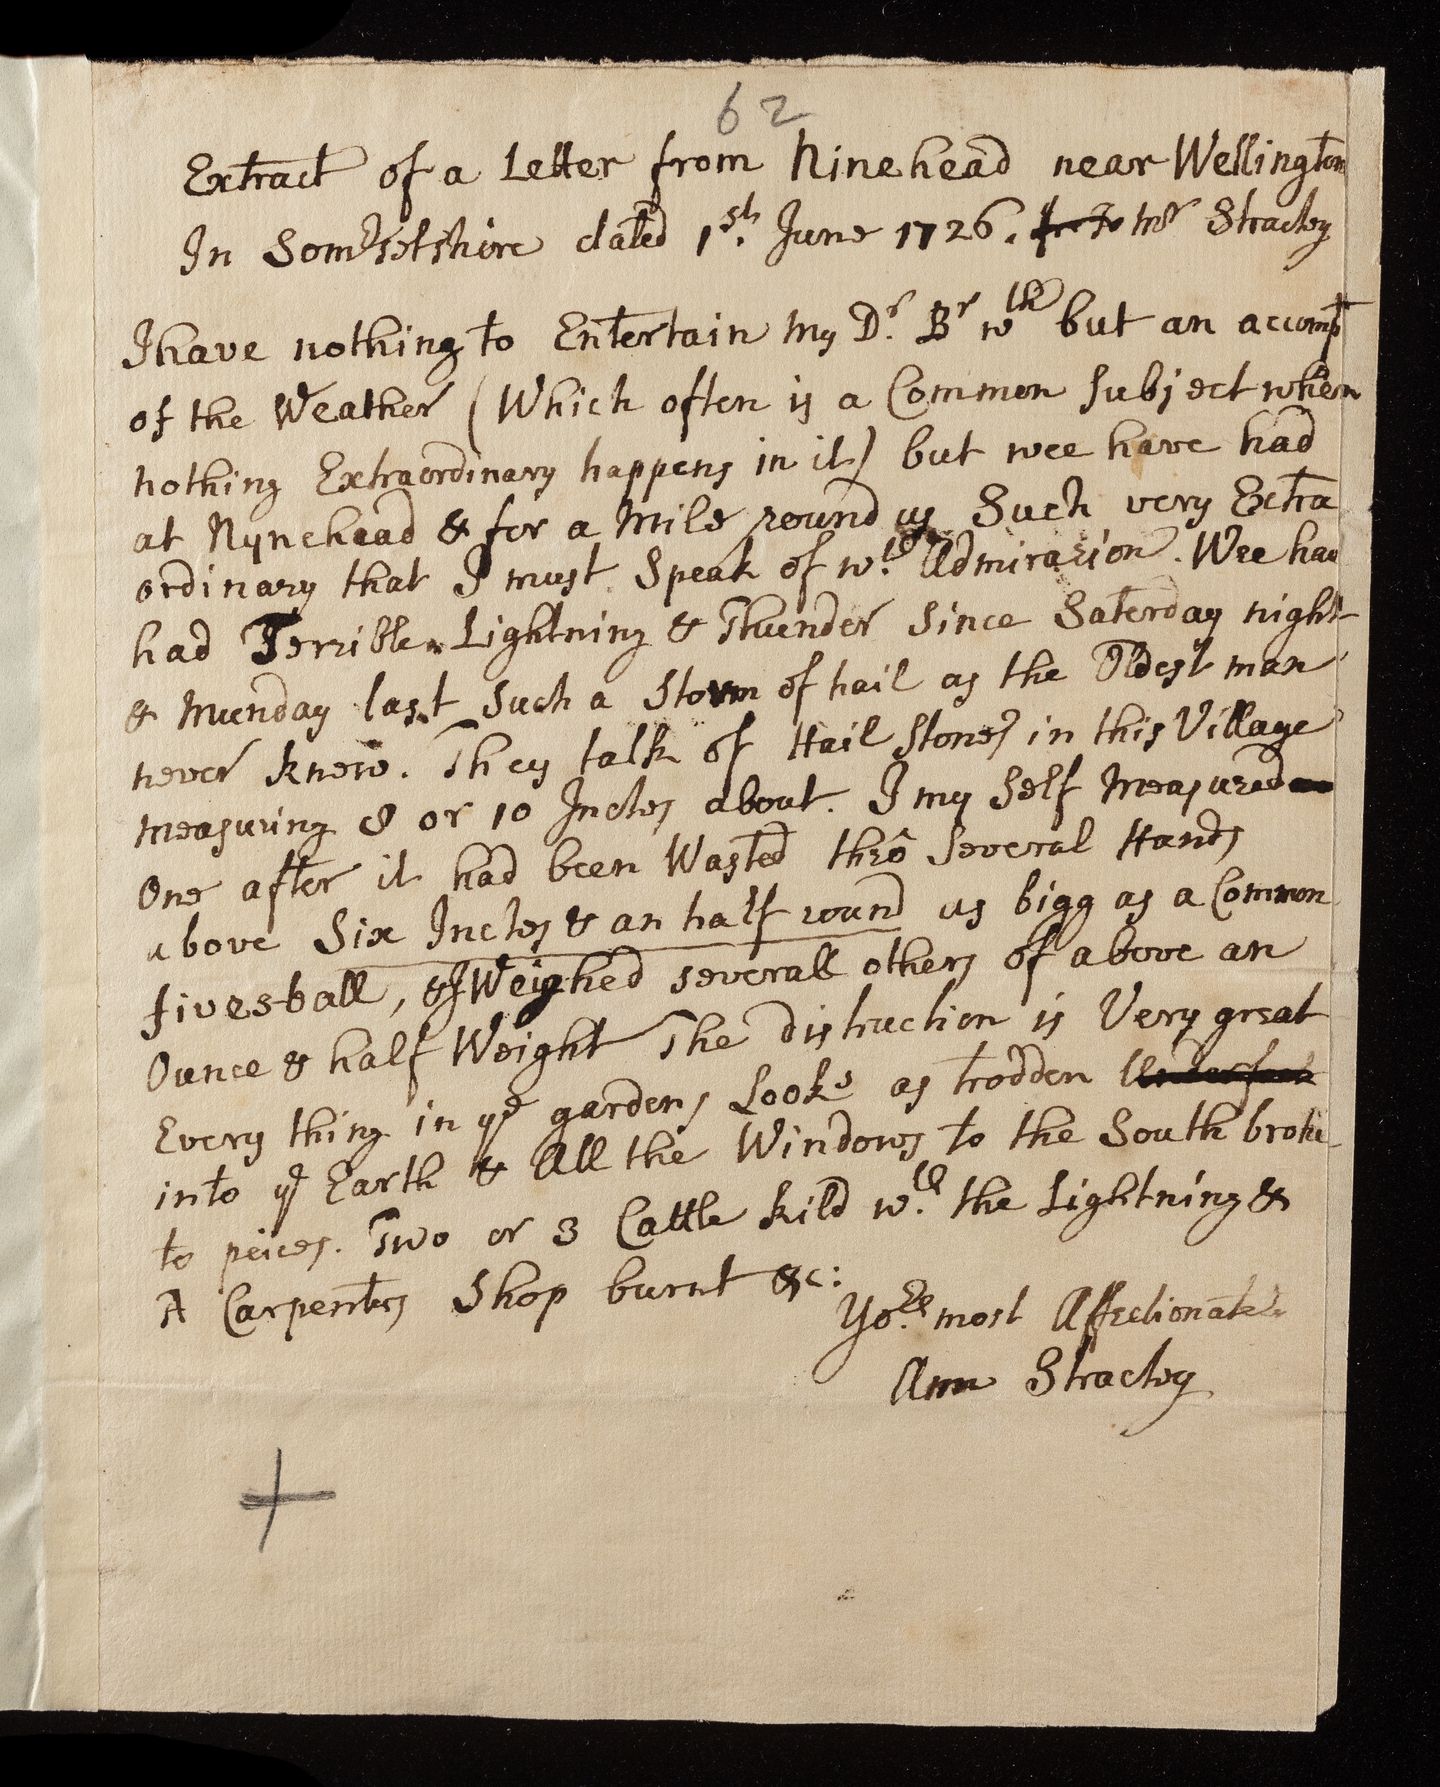 62
Extract of a Letter from Ninehead near Wellington
In Somersetshire dated 1st. June 1726. to Mr Strachey
I have nothing to Entertain my Dr. Br wth but an accompt
of the Weather (Which often is a Common Subject when
nothing Extraordinary happens in it) but wee have had
at Nynehead & for a Mile round us Such very Extra
ordinary that I must Speak of wth. Admirazion. Wee hav
had Terrible Lightning & Thunder Since Saterday night
& Munday last Such a Storm of hail as the Oldest man
never knew. They talk of Hail Stones in this Village
measuring 8 or 10 Inches about. I my Self Measured
One after it had been Wasted thrô Several Hands
above Six Inches & an half round as bigg as a Common
fives-ball, & I Weighed severall others of above an
Ounce & half Weight The distruction is Very great
Every thing in ye gardens Looks as trodden Underfoot
into ye Earth & All the Windows to the South broke
to peices. Two or 3 Cattle kild wth. the Lightning &
A Carpenters Shop burnt &c:
Yor. most Affectionate
Ann Strachey